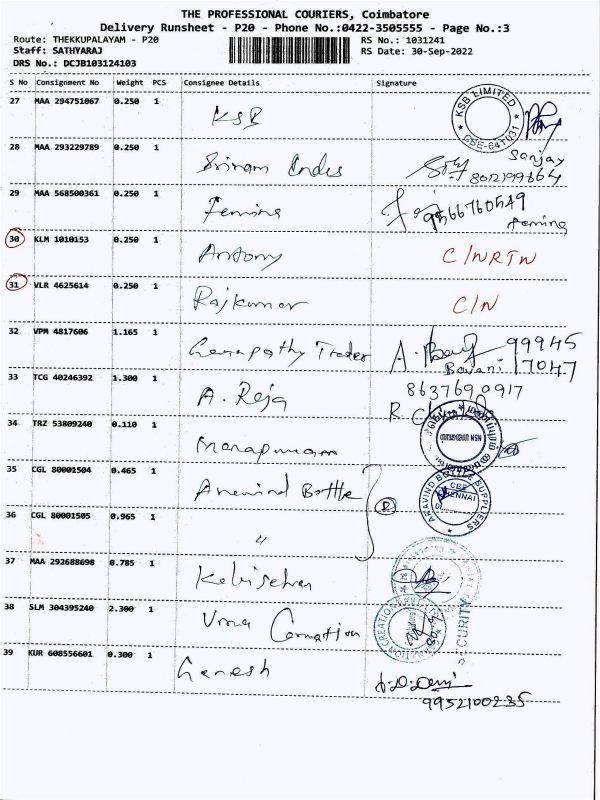 THE PROFESSIONAL COURIERS, Coimbatore
Delivery Runsheet - P20 - Phone No.:0422-3505555 - Page No.:3
Route: THEKKUPALAYAM - P20 RS No.: 1031241
Staff: SATHYARAJ RS Date: 30-Sep-2022
DRS No.: DCJB103124103
S No Consignment No Weight PCS Consignee Details Signature
27 MAA 294751067 0.250 1 KSB KSB LIMITED CBE-641031
28 MAA 293229789 0.250 1 Sriram Sanjay
29 MAA 568500361 0.250 1 Femina 9566760549
Femina
30 KLM 1010153 0.250 1 Antony C/NRTN
31 VLR 4625614 0.250 1 Rajkumar C/N
32 VPM 4817606 1.165 1 Ganapathy Trader 99945
Bavani 17047
33 TCG 40246392 1.300 1 A. Reja 8637690917
34 TRZ 53809240 0.110 1
35 CGL 80001504 0.465 1 Aravind Bottle ARAVIND BOTTLE SUPPLIERS
CBE
36 CGL 80001505 0.965 1 "
37 MAA 292688698 0.785 1
38 SLM 304395240 2.300 1 Uma SECURITY
39 KUR 608556601 0.300 1 Ganesh
9952100235